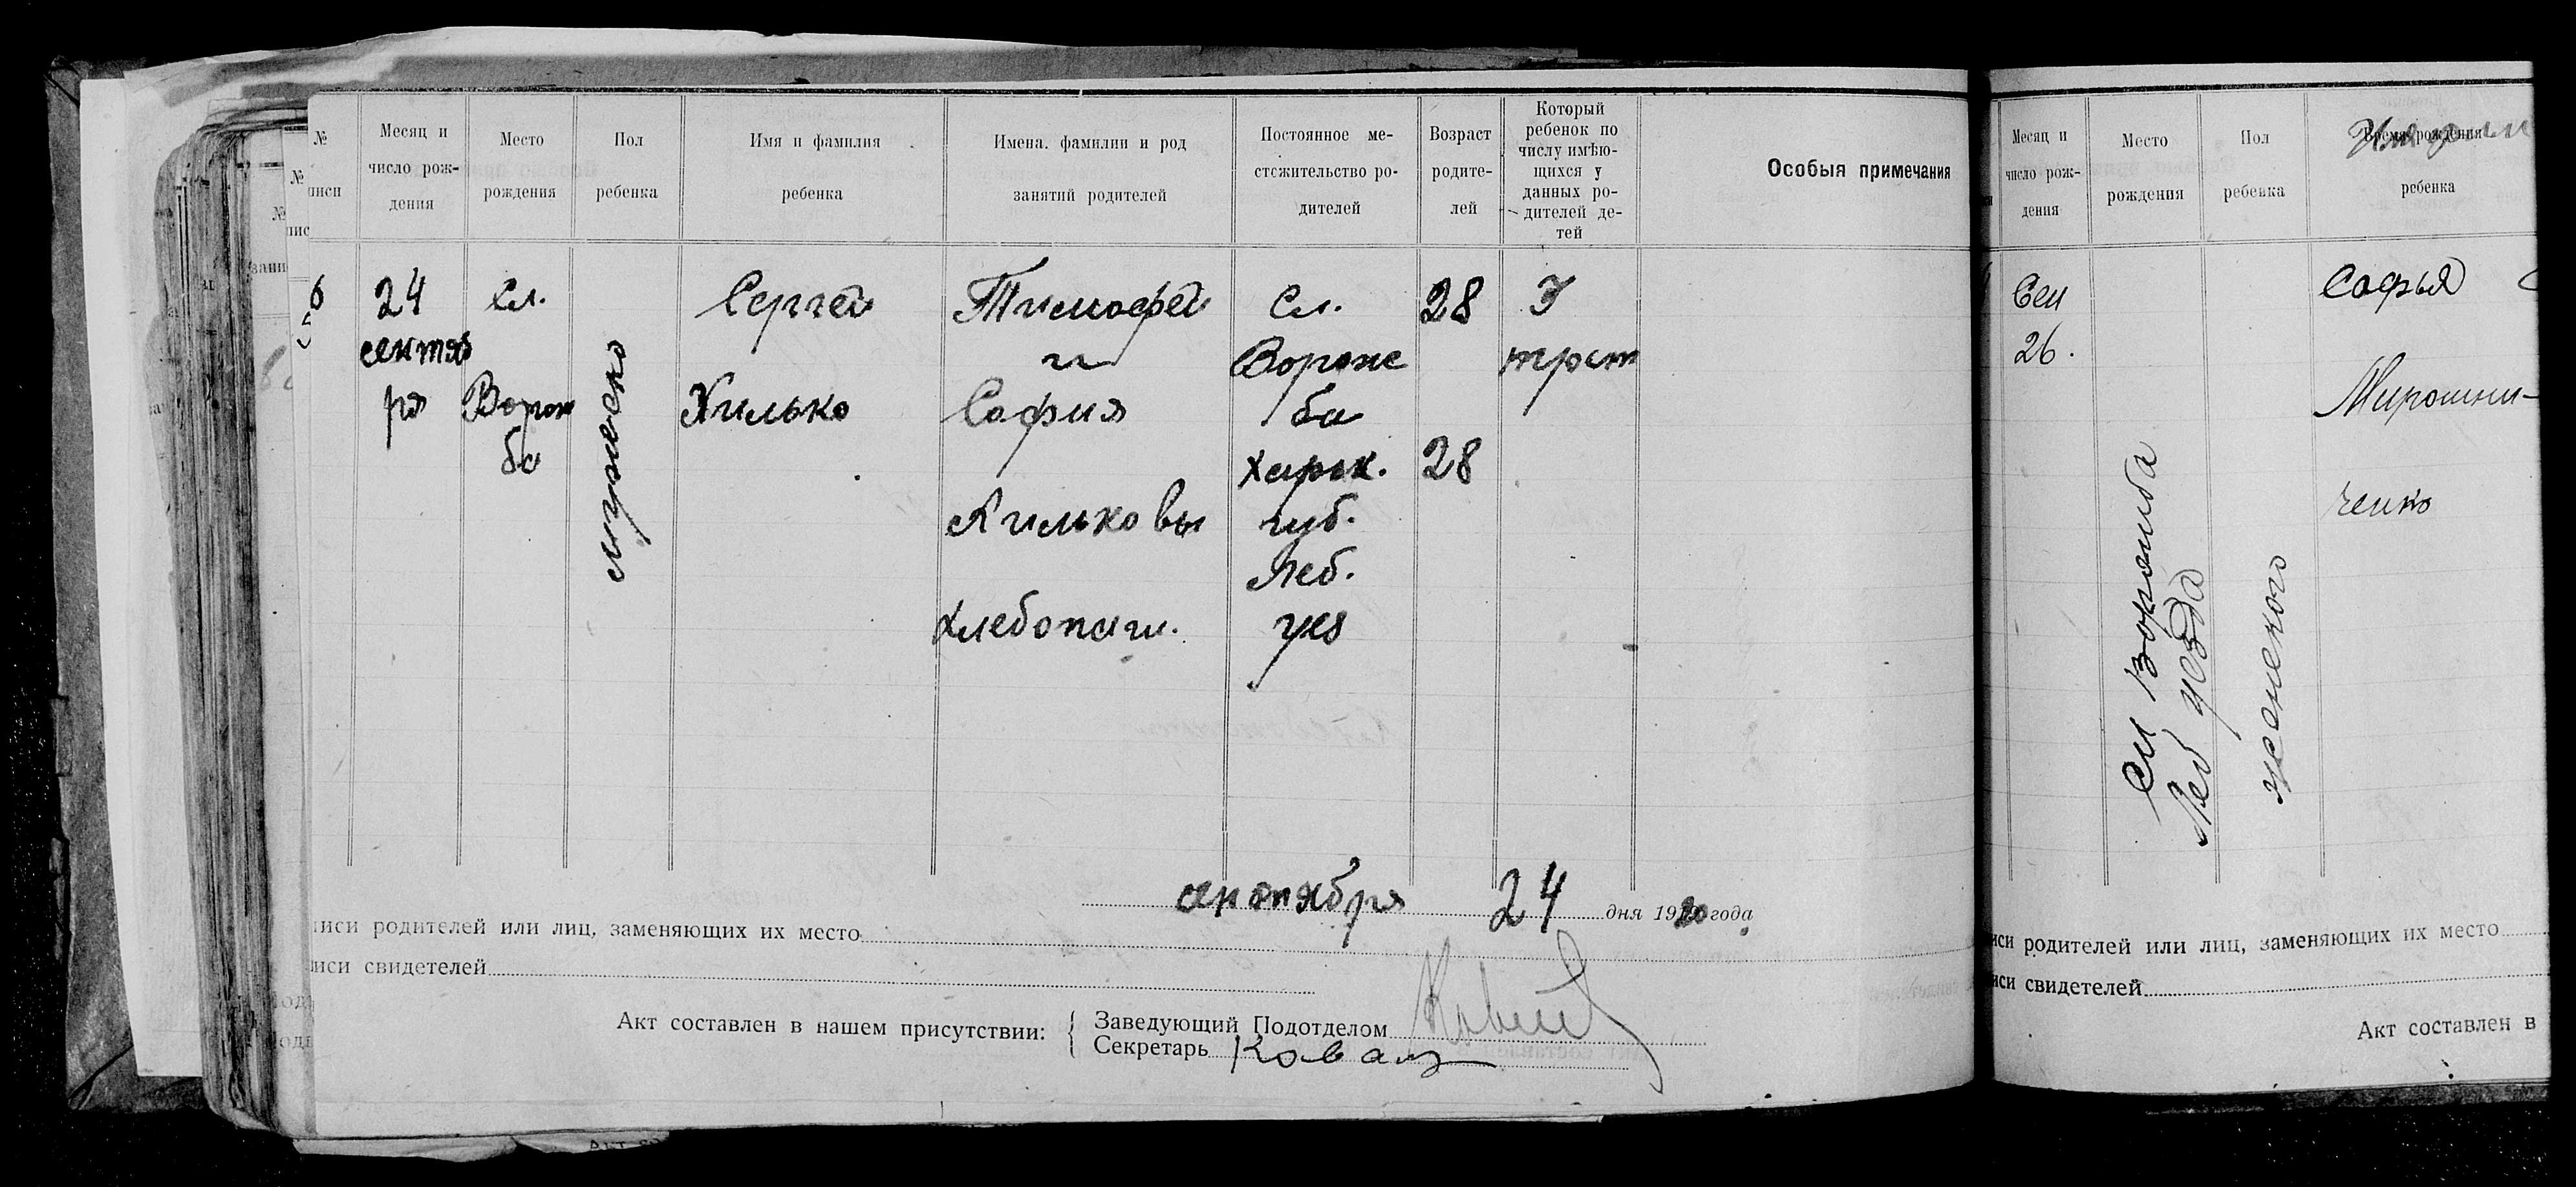 №
писи
Месяц и
число рож-
дения
Место
рождения
Пол
ребенка
Имя и фамилия
ребенка
Имена, фамилии и род
занятий родителей
Постоянное ме-
стожительство ро-
дителей
Возраст
родите-
лей
Который
ребенок по
числу имѣю-
щихся у
данных ро-
дителей де-
тей
Особыя примечания
24
сентяб
ря
сл.
Ворож
ба
мужеско
Сергей
Хилько
Тимофей
и
София
Хильковы
хлебопаш.
Сл.
Вороже
ба
Харьк.
губ.
Леб.
уез
28
28
3
трет
сентября 24 дня 1920 года
писи родителей или лиц, заменяющих их место
писи свидетелей
Акт составлен в нашем присутствии:
Заведующий Подотделом
Секретарь
Месяц и
число рож-
дения
Место
рождения
Пол
ребенка
Время рождения
ребенка
Сен
26.
Сл Ворожба
Леб уезда
женского
Софья
Мирошни-
ченко
иси родителей или лиц, заменяющих их место
иси свидетелей
Акт составлен в